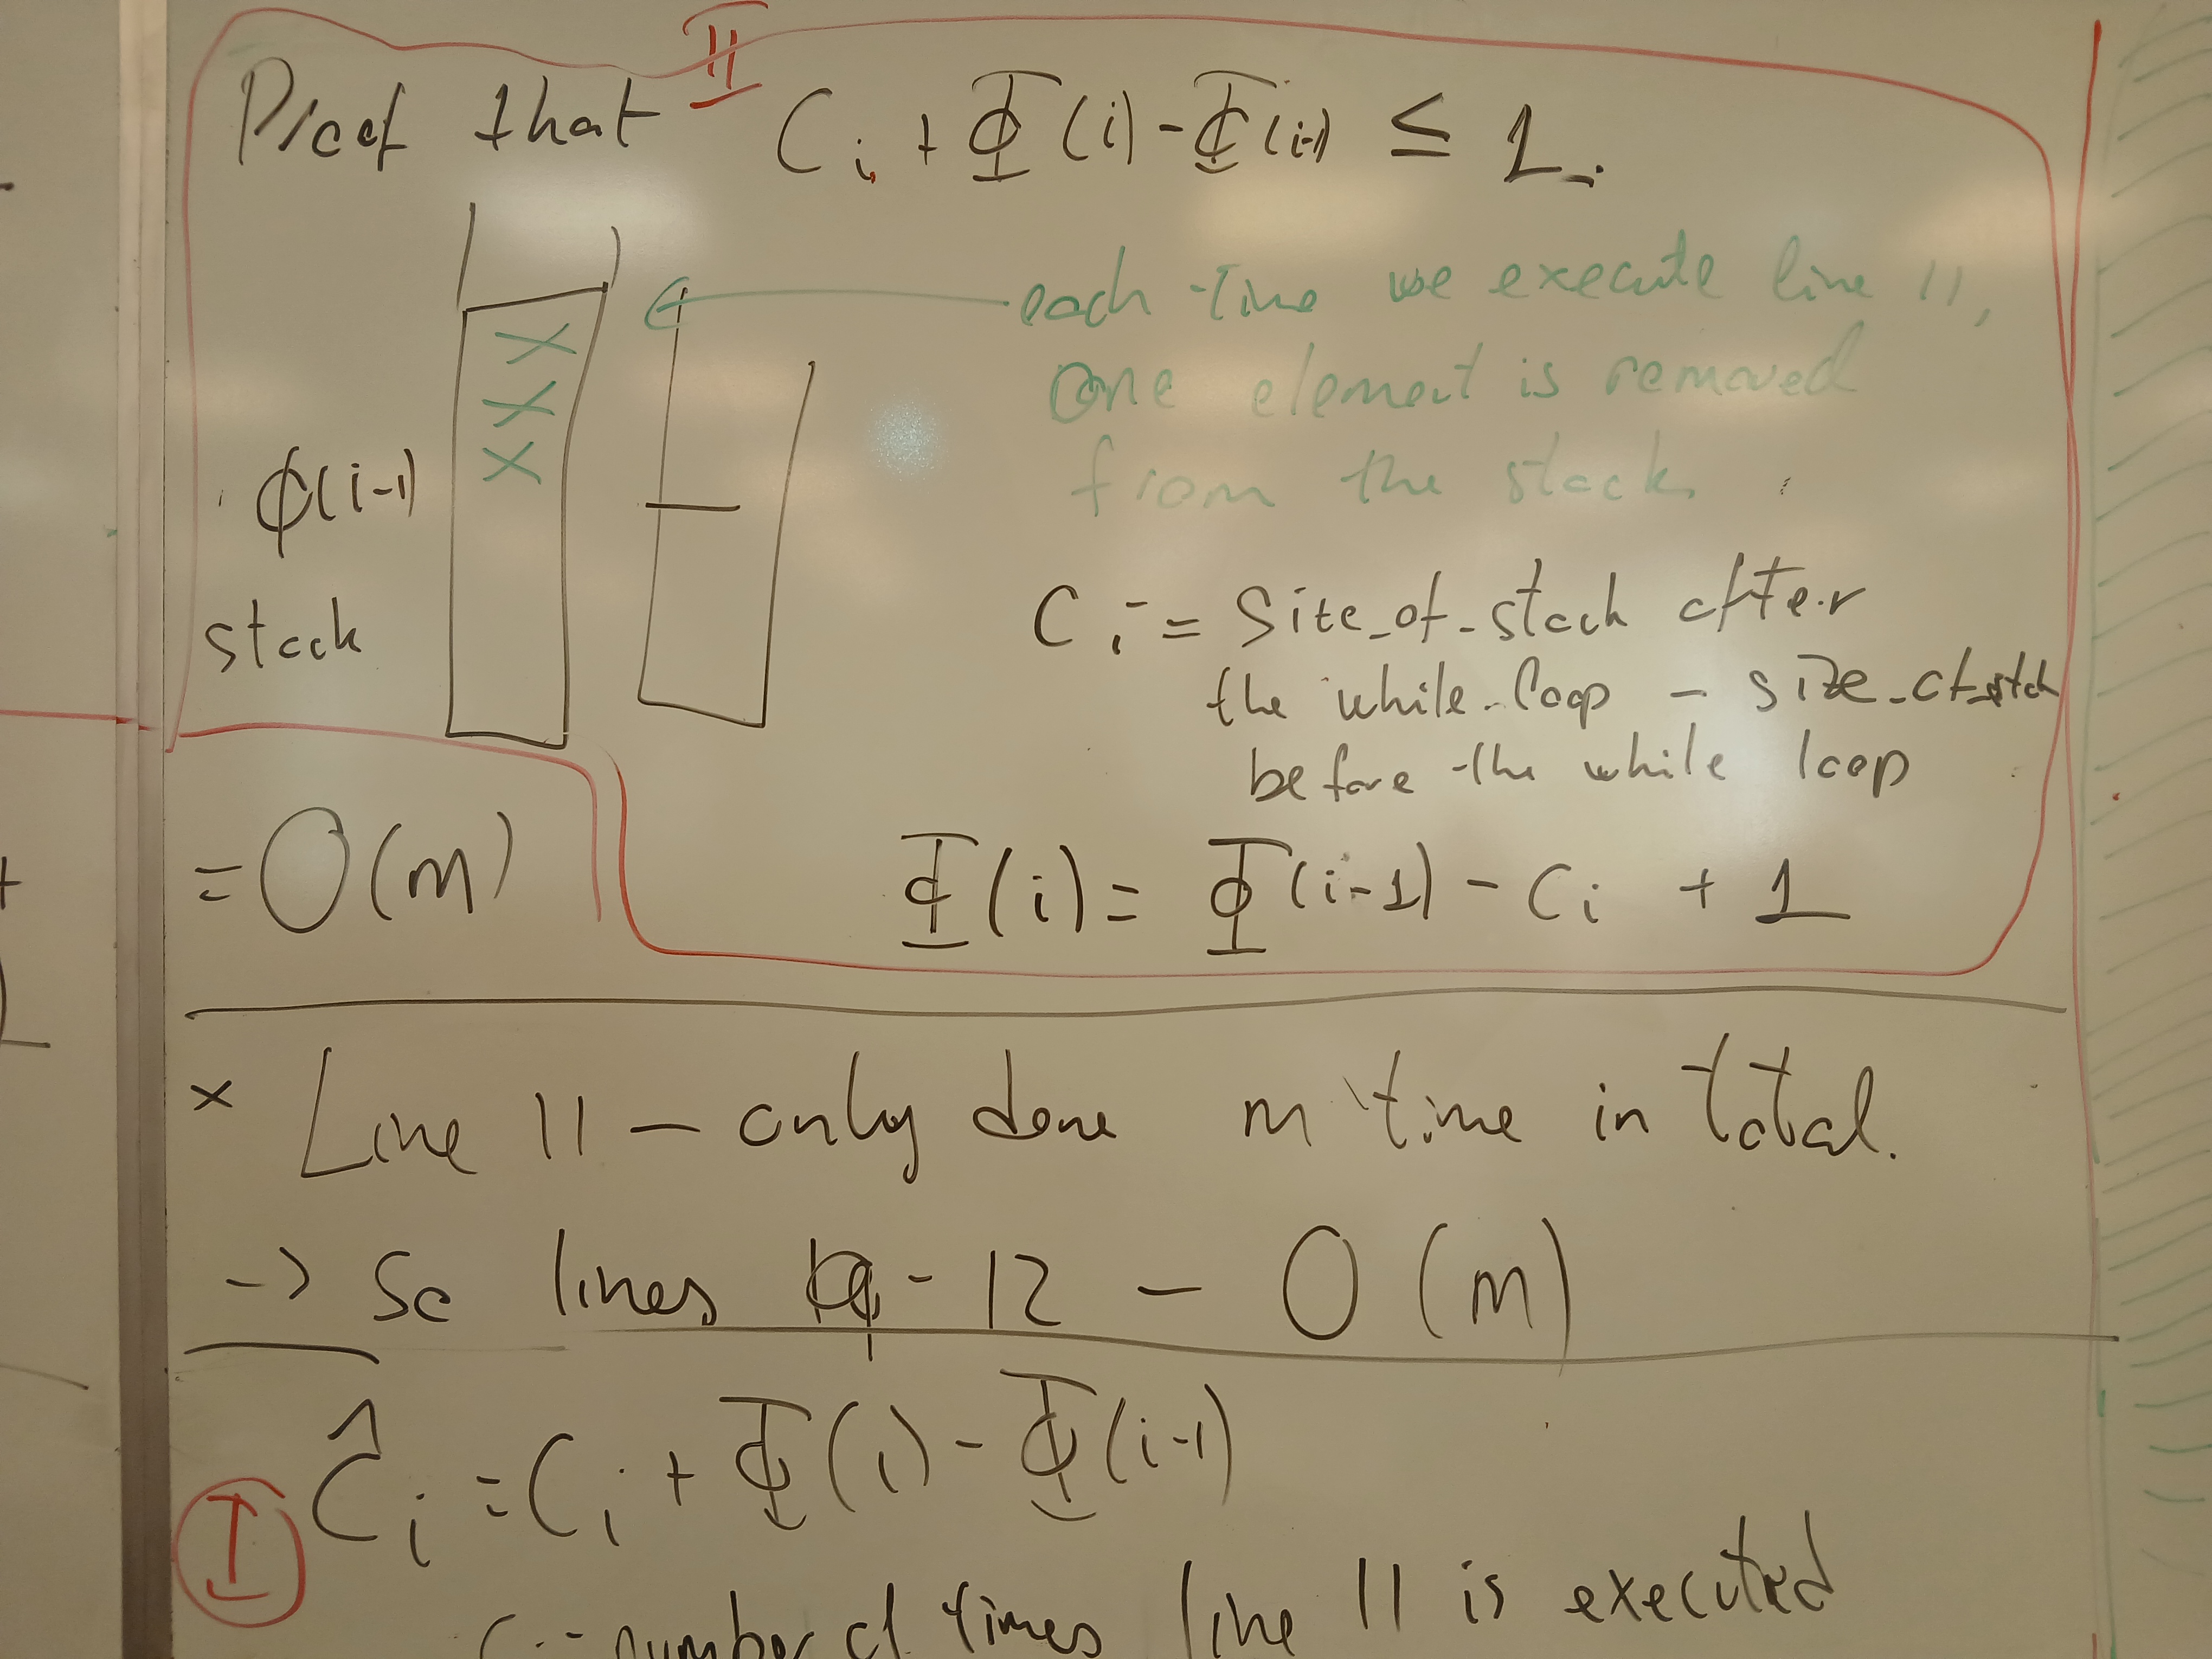 II
Proof that C_i + Φ(i) - Φ(i-1) ≤ 1.
each time we execute line 11,
one element is removed
from the stack.
ϕ(i-1)
stack
C_i = Size_of_stack after
the while loop - size_of_stack
before the while loop
= O(m)
Φ(i) = Φ(i-1) - C_i + 1
× Line 11 - only done m time in total.
-> So lines - 12 - O(m)
I
Ĉ_i = C_i + Φ(i) - Φ(i-1)
C_i - number of times line 11 is executed